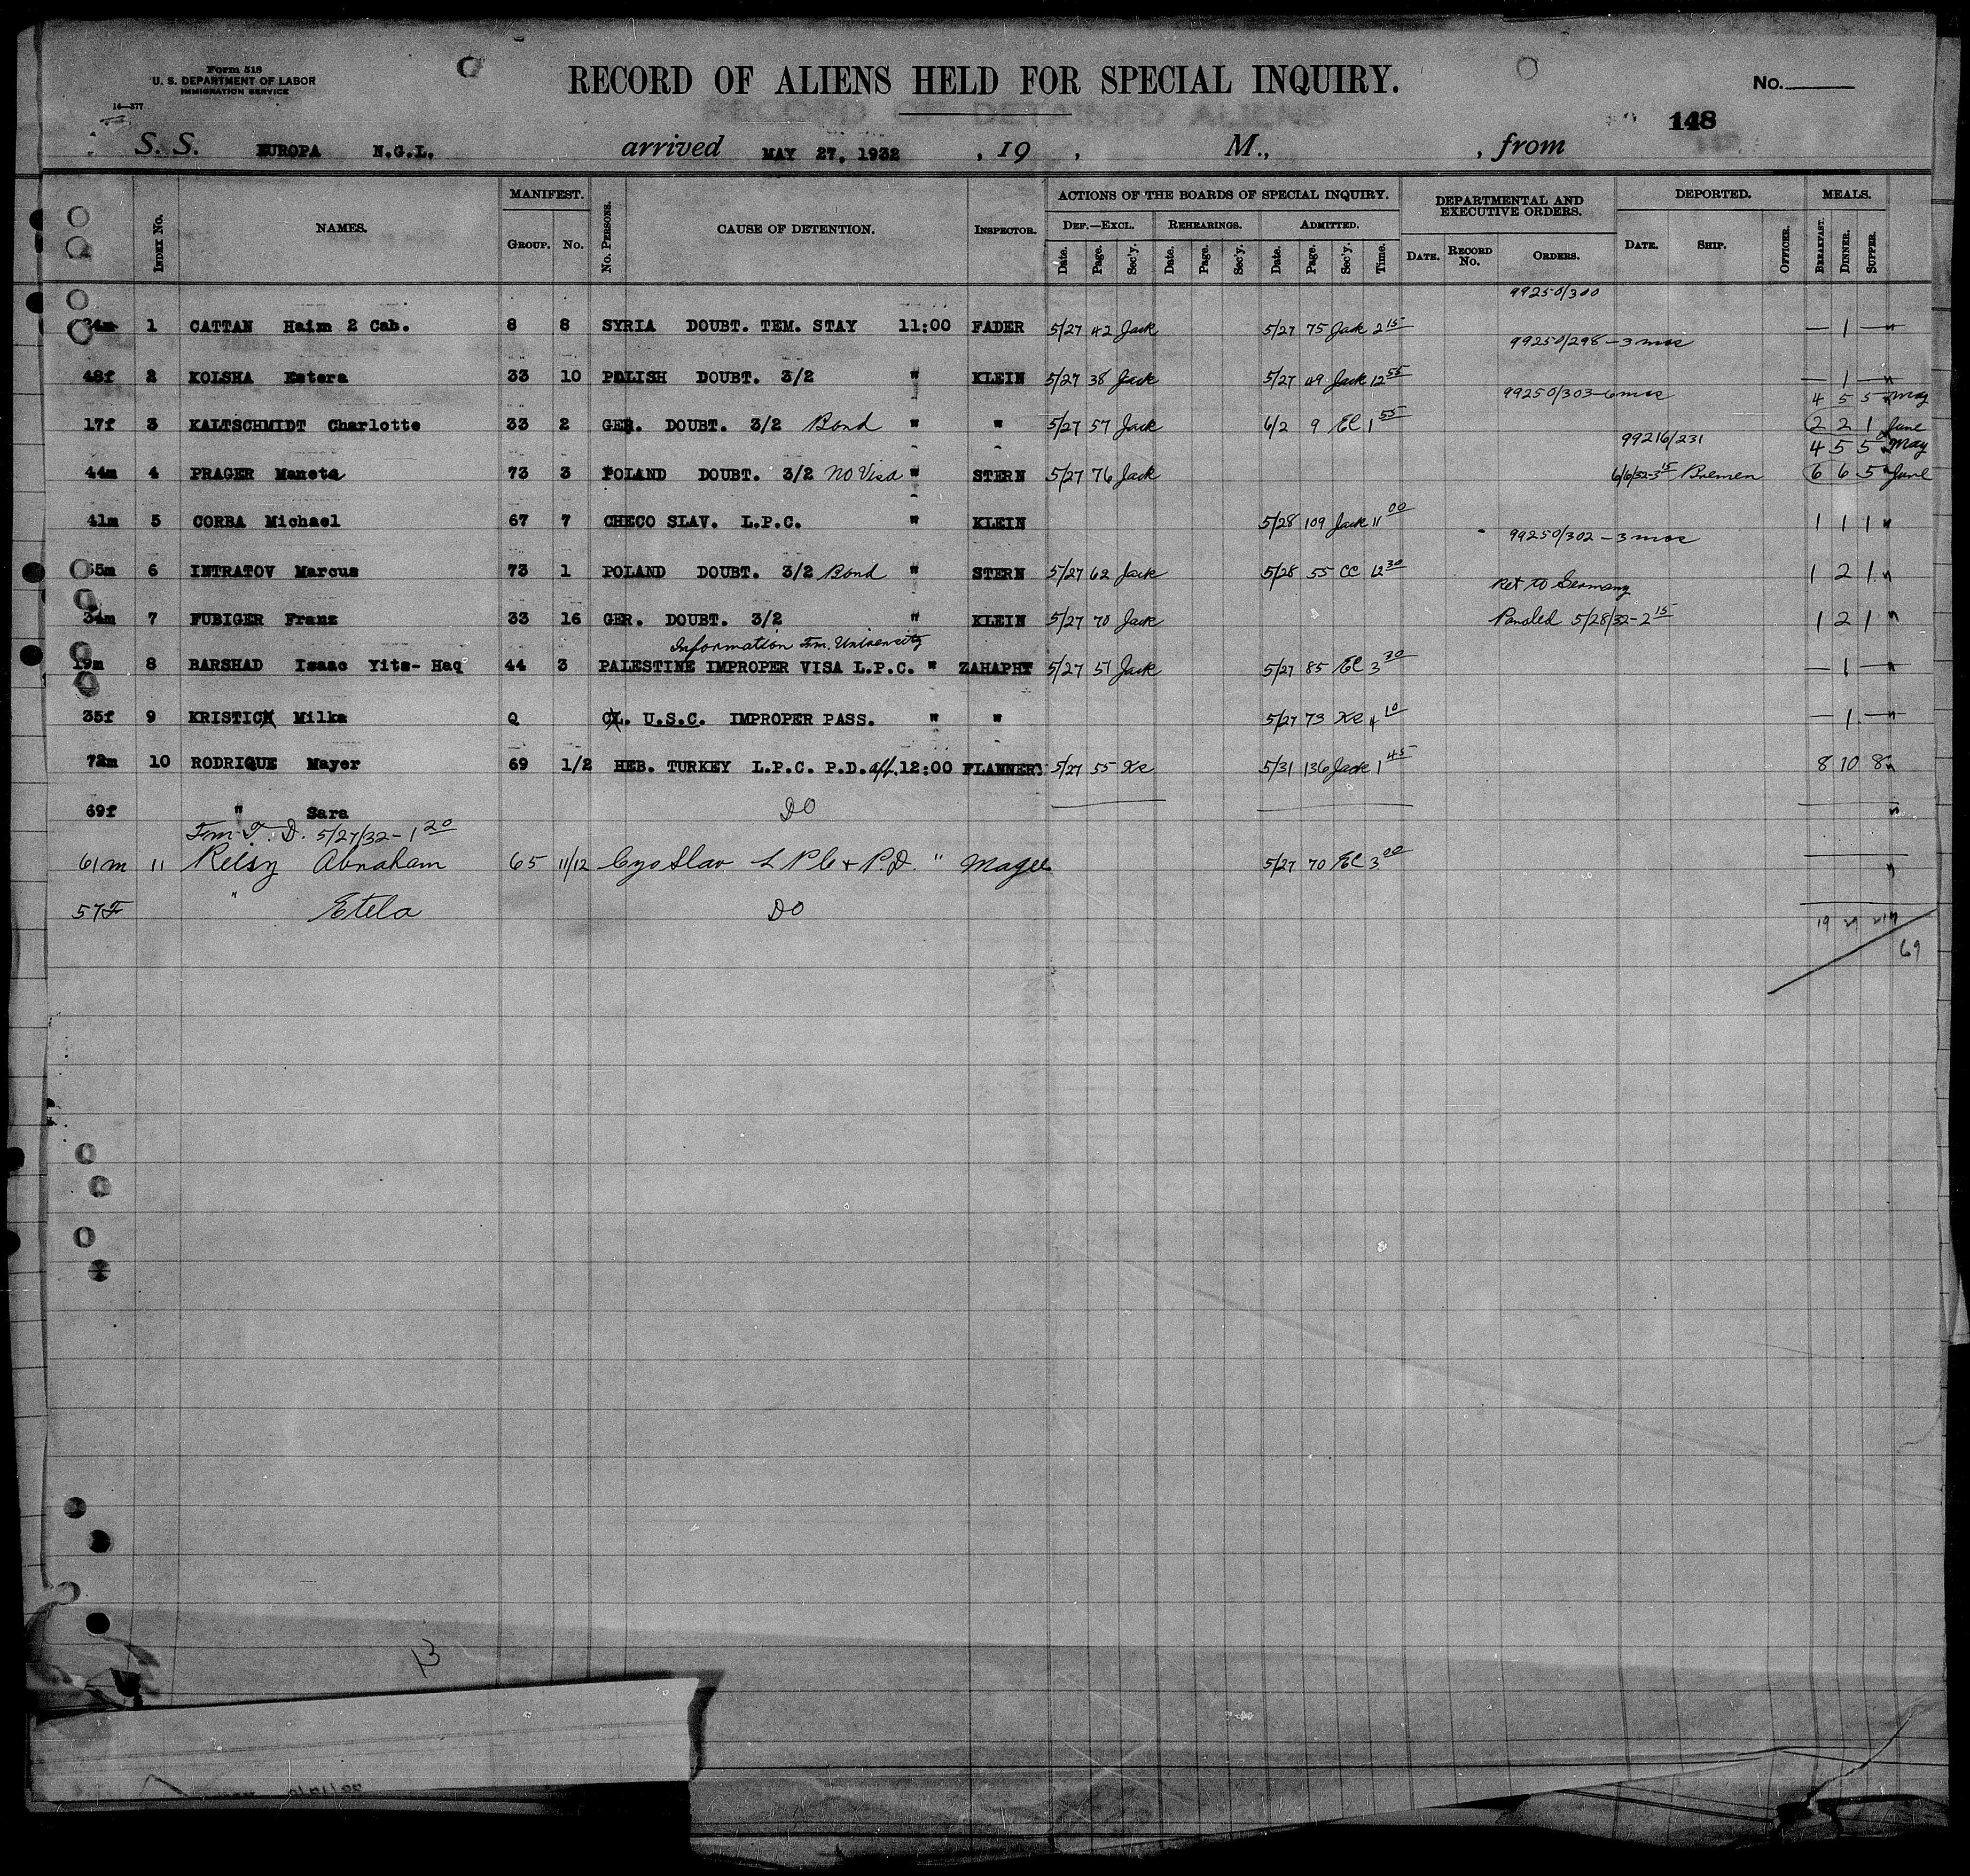 Form 518
U. S. DEPARTMENT OF LABOR
IMMIGRATION SERVICE
14—377
RECORD OF ALIENS HELD FOR SPECIAL INQUIRY.
No.
148
S. S. EUROPA N.G.L. arrived MAY 27, 1932 , 19 , M., , from
INDEX No. NAMES. MANIFEST. GROUP. No. No. PERSONS. CAUSE OF DETENTION. INSPECTOR. ACTIONS OF THE BOARDS OF SPECIAL INQUIRY. DEF.—EXCL. Date. Page. Sec'y. REHEARINGS. Date. Page. Sec'y. ADMITTED. Date. Page. Sec'y. Time. DEPARTMENTAL AND EXECUTIVE ORDERS. DATE. RECORD No. ORDERS. DEPORTED. DATE. SHIP. OFFICER. MEALS. BREAKFAST. DINNER. SUPPER.
99250/300
34m 1 CATTAN Haim 2 Cab. 8 8 SYRIA DOUBT. TEM. STAY 11:00 FADER 5/27 42 Jack 5/27 75 Jack 2 15 — 1 — "
99250/298 - 3 mos
48f 2 KOLSHA Estera 33 10 POLISH DOUBT. 3/2 " KLEIN 5/27 38 Jack 5/27 49 Jack 12 55 — 1 — "
99250/303 - 6 mos 4 5 5 " May
17f 3 KALTSCHMIDT Charlotte 33 2 GER. DOUBT. 3/2 Bond " " 5/27 57 Jack 6/2 9 EC 1 55 2 2 1 June
99216/231 4 5 5 " May
44m 4 PRAGER Manete 73 3 POLAND DOUBT. 3/2 No Visa " STERN 5/27 76 Jack 6/6/32-3 15 Bremen 6 6 5 " June
41m 5 CORBA Michael 67 7 CHECO SLAV. L.P.C. " KLEIN 5/28 109 Jack 11 00 1 1 1 "
99250/302 - 3 mos
55m 6 INTRATOV Marcus 73 1 POLAND DOUBT. 3/2 Bond " STERN 5/27 62 Jack 5/28 55 CC 12 30 1 2 1 "
Ret to Germany
34m 7 FUBIGER Franz 33 16 GER. DOUBT. 3/2 " KLEIN 5/27 70 Jack Paroled 5/28/32-2 15 1 2 1 "
Information Fm. University
19m 8 BARSHAD Isaac Yits- Haq 44 3 PALESTINE IMPROPER VISA L.P.C. " ZAHAPHY 5/27 51 Jack 5/27 85 EC 3 30 — 1 — "
35f 9 KRISTICH Milka Q CL. U.S.C. IMPROPER PASS. " " 5/27 73 Ke 4 10 — 1 — "
72m 10 RODRIQUE Mayer 69 1/2 HEB. TURKEY L.P.C. P.D. aff. 12:00 FLANNERY 5/27 55 Ke 5/31 136 Jack 1 45 8 10 8 "
69f " Sara DO "
Fm T. D. 5/27/32 - 1 20
61m 11 Reisz Abraham 65 11/12 Czo Slav L P C + P.D. " Magee 5/27 70 EC 3 00 "
57F " Etela DO
19 29 21
69
13